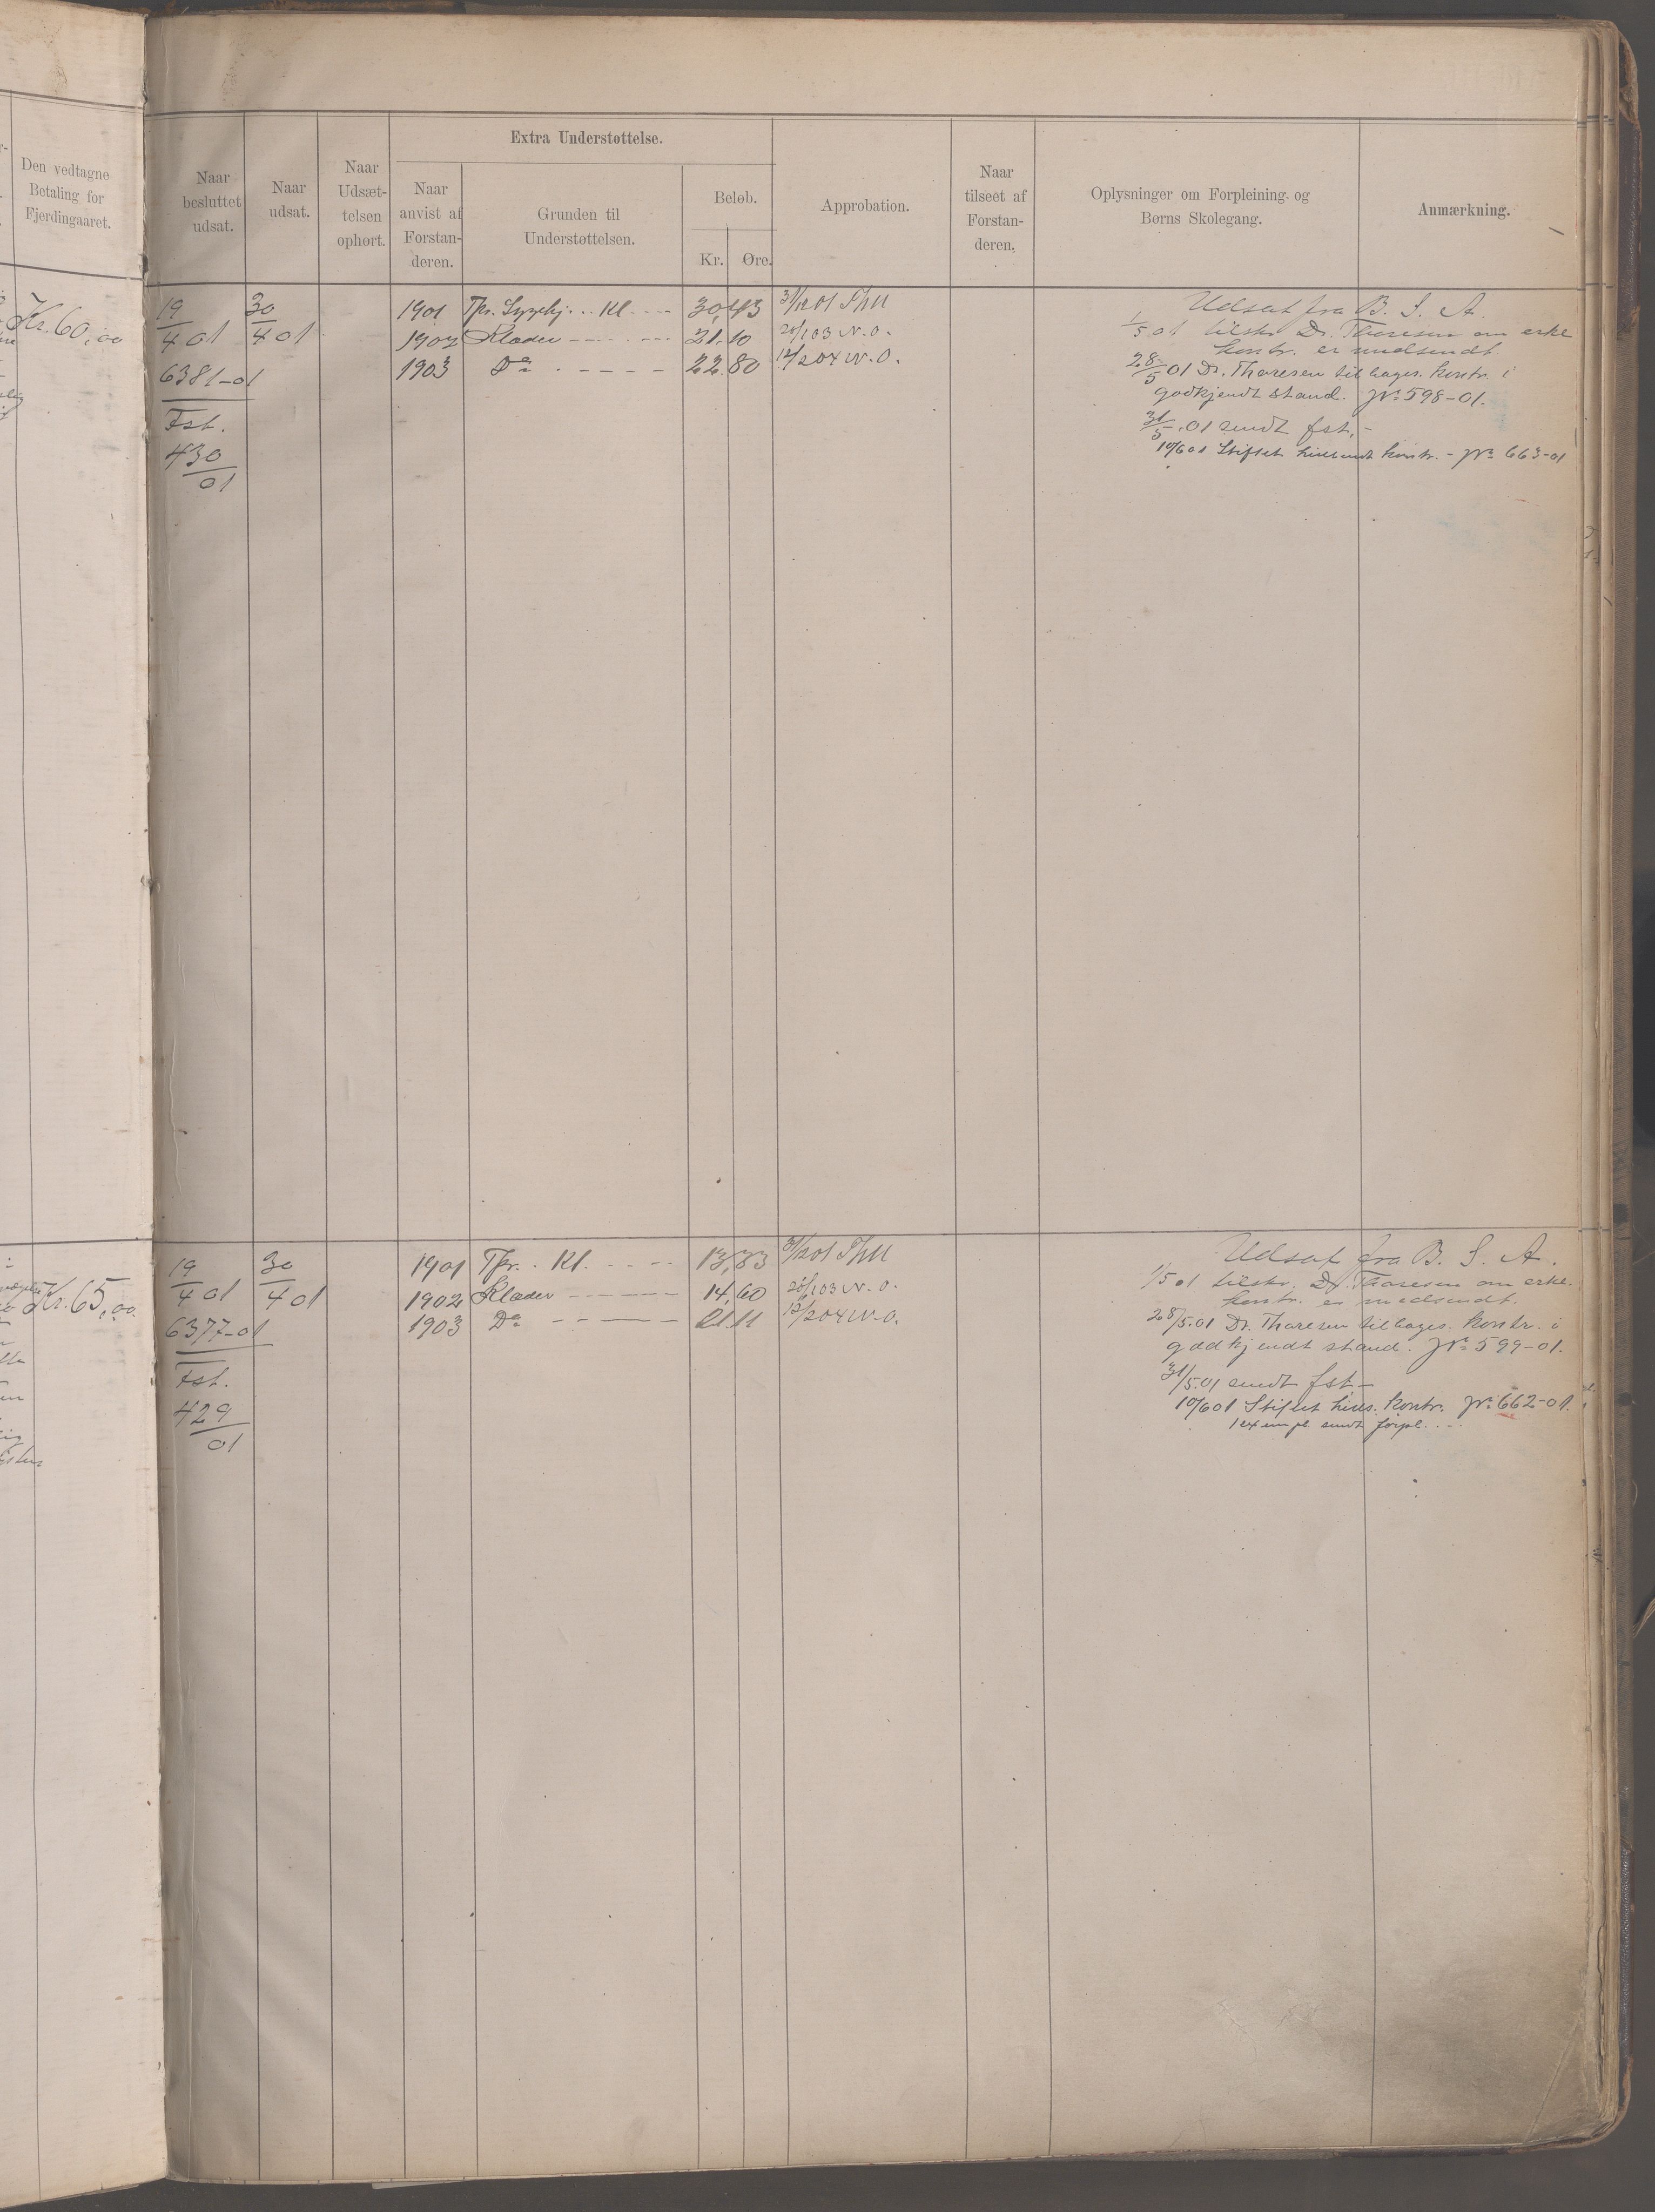 Den vedtagne
Betaling for
Fjerdingaaret.
Naar
besluttet
udsat.
Naar
udsat.
Naar
Udsæt-
telsen
ophørt.
Extra Understøttelse.
Naar
anvist af
Forstan-
deren.
Grunden til
Understøttelsen.
Beløb.
Kr. Øre.
Approbation.
Naar
tilseet af
Forstan-
deren.
Oplysninger om Forpleining og
Børns Skolegang.
Anmærkning.
Kr. 60,00
19/4 01
6381-01
Fst.
430/01
30/4 01
1901 Tpr. Sygehj... Kl. - - - 30,43 31/12 01
1902 Klæder - - - - - 21.10 20/1 03 N.O.
1903 Do - - - - - 22.80 12/2 04 N.O.
Udsat fra B. S. A.
1/5 01 tilskr. Dr. Thoresen om erkl.
kontr. er medsendt.
28/5 01 Dr. Thoresen tilbages. kontr. i
godkjendt stand. No 598-01.
31/5 .01 sendt fst. -
10/6 01 Stiftet kontr. - No 663-01
Kr. 65,00
19/4 01
6377-01
Fst.
429/01
30/4 01
1901 Tpr. . Kl. - - - - 13,83 31/12 01
1902 Klæder - - - - - 14,60 20/1 03 N.O.
1903 Do - - - - - 21.11 12/2 04 N.O.
Udsat fra B. S. A.
1/5 01 tilskr. Dr. Thoresen om erkl.
kontr. er medsendt.
28/5.01 Dr. Thoresen tilbages. kontr. i
godkjendt stand. No 599-01.
31/5.01 sendt fst. -
10/6 01 Stiftet kontr. No 662-01.
1 exempl. sendt forpl. . -